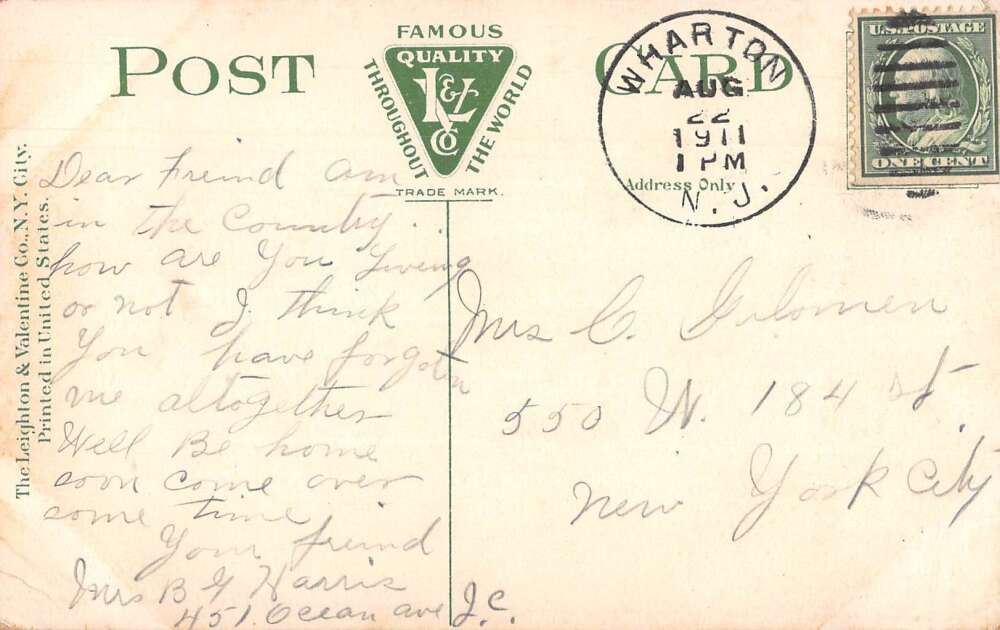 POST CARD
FAMOUS
QUALITY
THROUGHOUT
THE WORLD
L&V
Co
TRADE MARK.
WHARTON
AUG
22
1911
1 PM
N. J.
Address Only
U.S. POSTAGE
ONE CENT
The Leighton & Valentine Co., N.Y. City.
Printed in United States.
Dear Freind am
in the Country..
how are You Liveing
or not I think
You have forgoten
me altogether
Well Be home
soon come over
some time
Your freind
Mrs B Harris
451 Ocean ave J.C.
Mrs C.
550 W. 184 St.
New York City